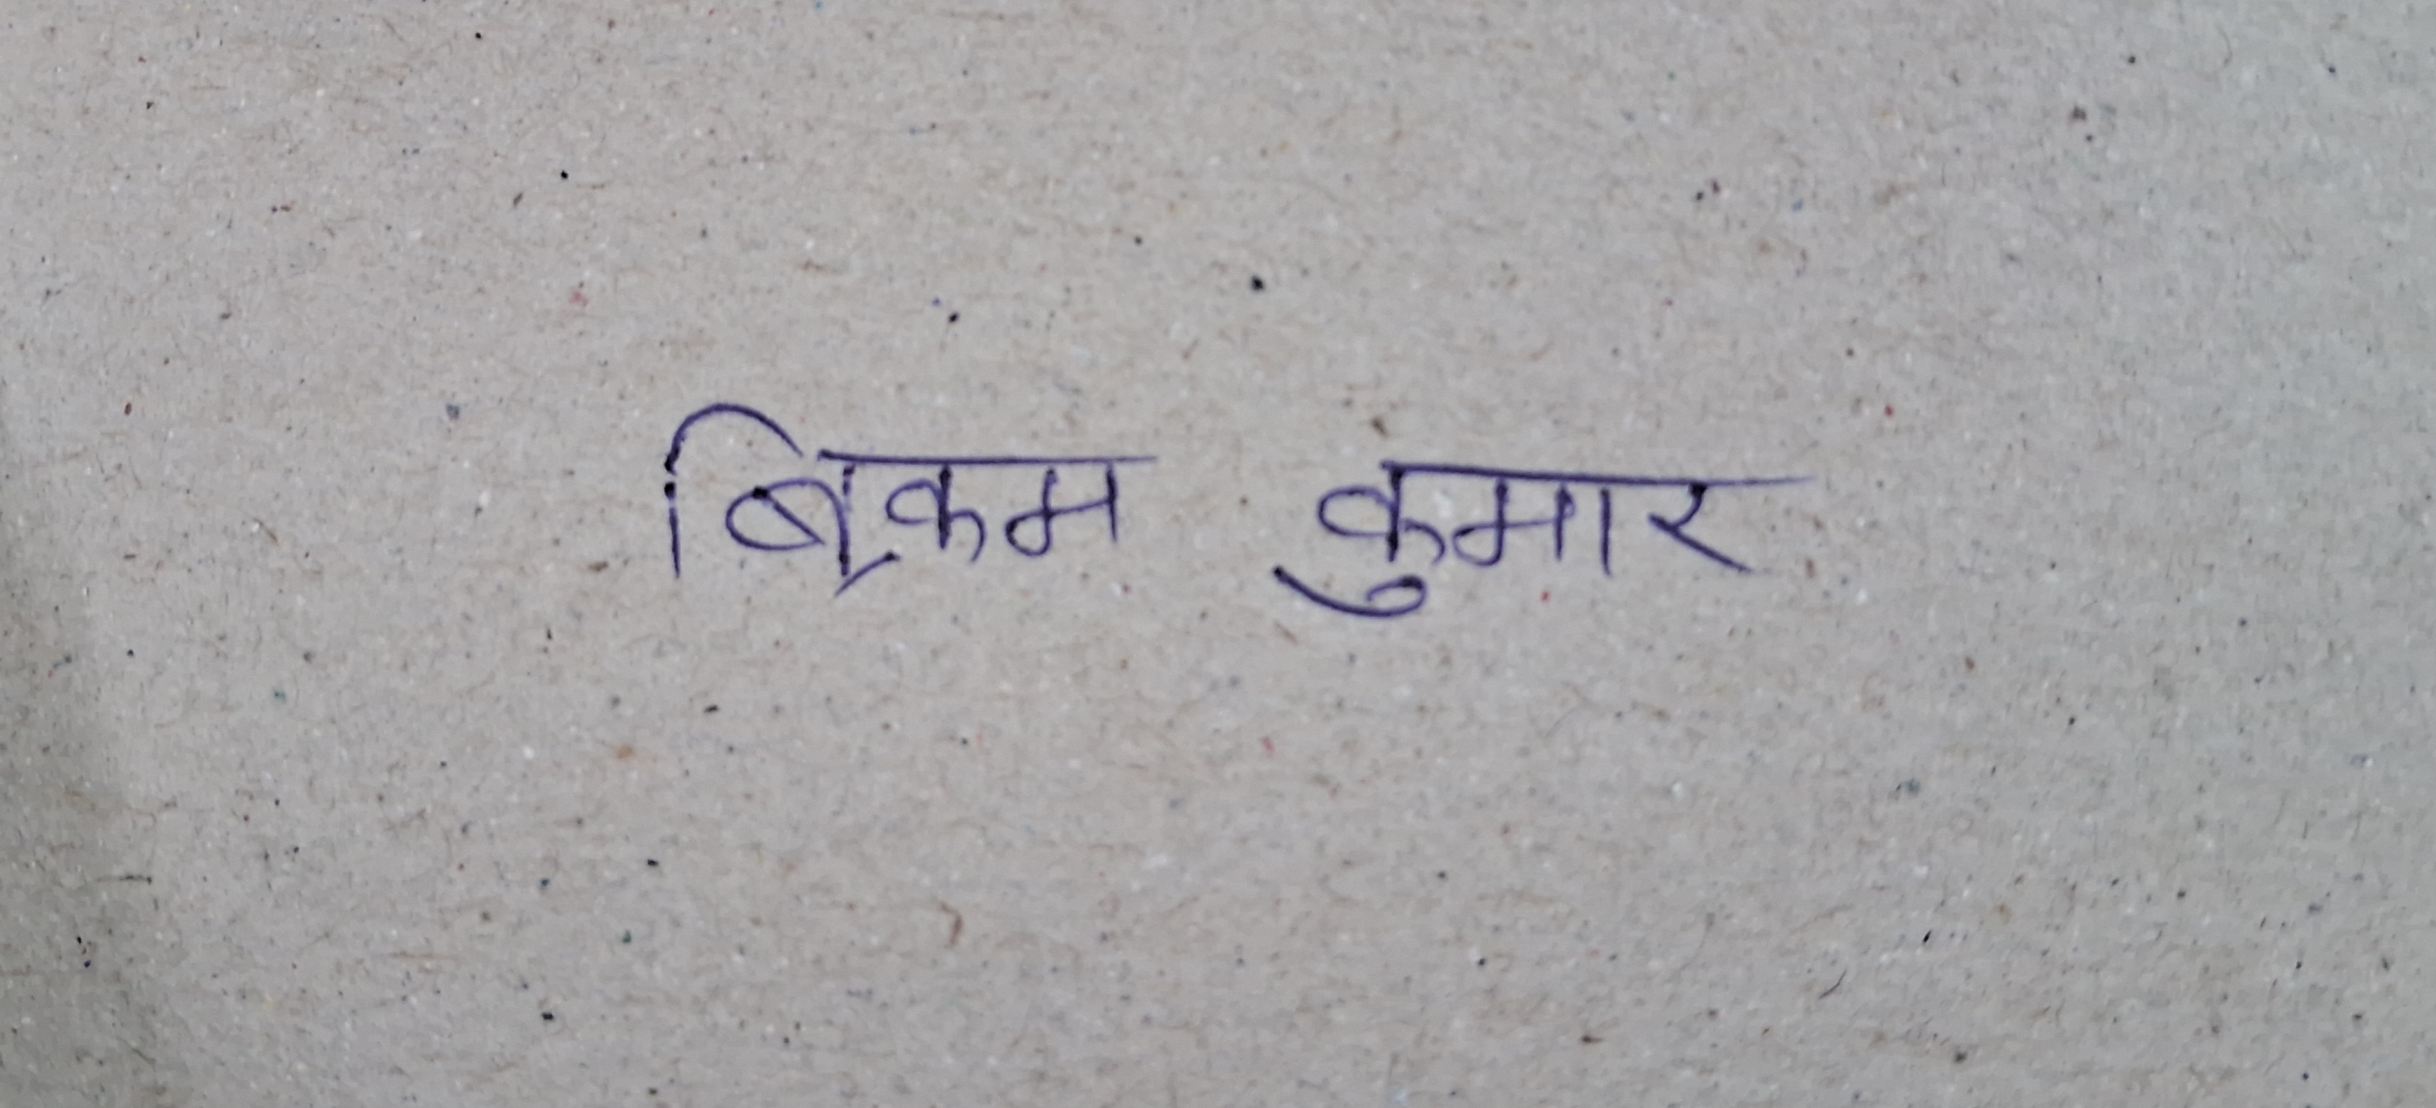 बिक्रम कुमार